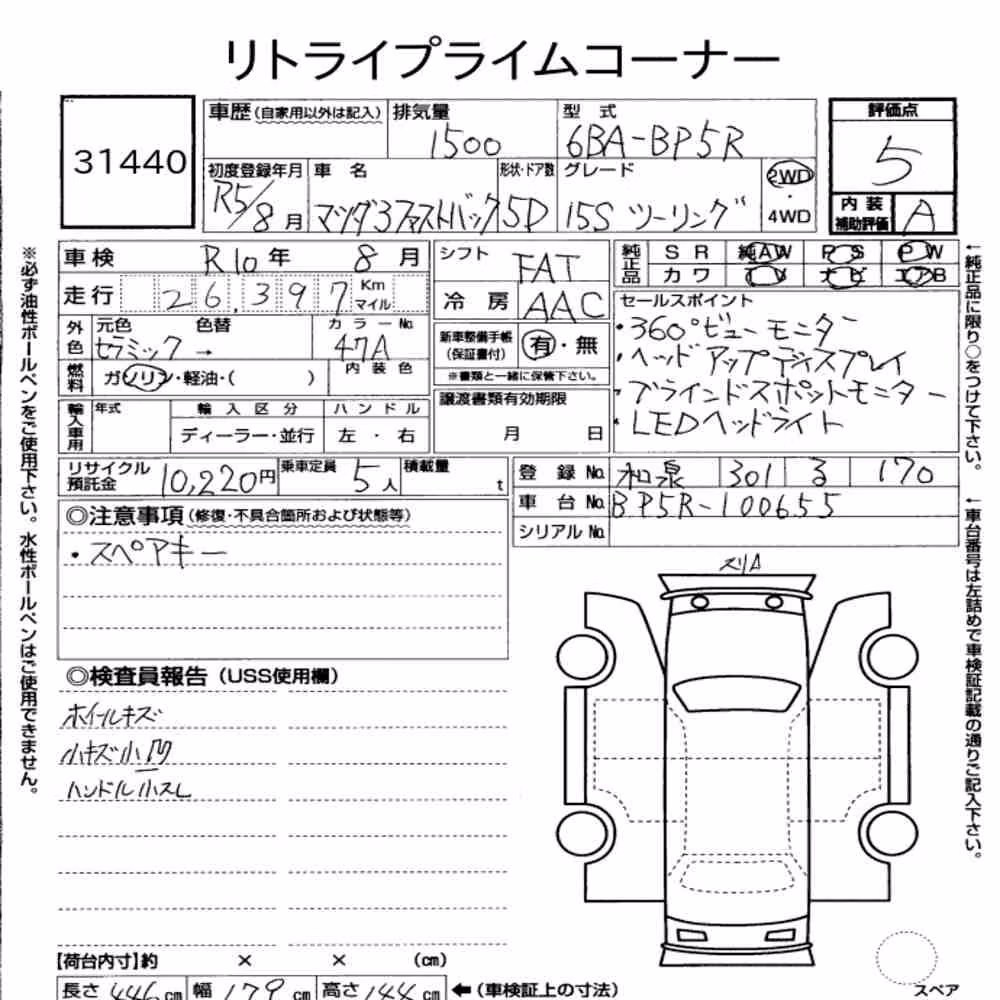 リトライプライムコーナー
31440
車歴(自家用以外は記入) 排気量 1500 型式 6BA-BP5R 評価点 5
初度登録年月 R5/8月 車名 マツダ3ファストバック 形状・ドア数 5D グレード 15S ツーリング 2WD・4WD
内装補助評価 A
車検 R10年 8月 シフト FAT 純正品 SR 純AW PS PW
カワ TV ナビ エアB
走行 26,397 Km マイル 冷房 AAC
セールスポイント
・360°ビューモニター
・ヘッドアップディスプレイ
・ブラインドスポットモニター
・LEDヘッドライト
外色 元色 セラミック 色替 → カラーNo. 47A
新車整備手帳(保証書付) 有・無
※書類と一緒に保管下さい。
燃料 ガソリン・軽油・( ) 内装色
譲渡書類有効期限
月 日
輸入車用 年式 輸入区分 ハンドル
ディーラー・並行 左・右
リサイクル預託金 10,220円 乗車定員 5人 積載量 t
登録No. 和泉 301 る 170
車台No. BP5R-100655
シリアルNo.
◎注意事項(修復・不具合箇所および状態等)
・スペアキー
スリA
◎検査員報告(USS使用欄)
ホイールキズ
小キズ小凹
ハンドル小スレ
【荷台内寸】約 × × (cm)
長さ 446cm 幅 179cm 高さ 144cm ←(車検証上の寸法)
スペア
※必ず油性ボールペンをご使用下さい。水性ボールペンはご使用できません。
←純正品に限り○をつけて下さい。
←車台番号は左詰めで車検証記載の通りご記入下さい。